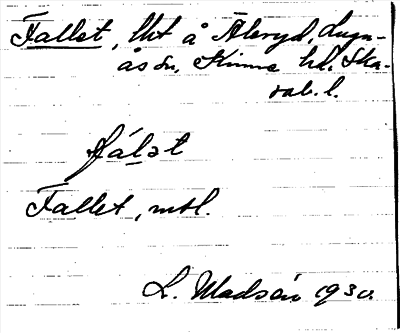 Fallet, lht å Åleryd, Lugn-
ås sn, Kinne hd. Ska-
rab. l.
fálat
Fallet, mtl.
L. Madsén 1930.